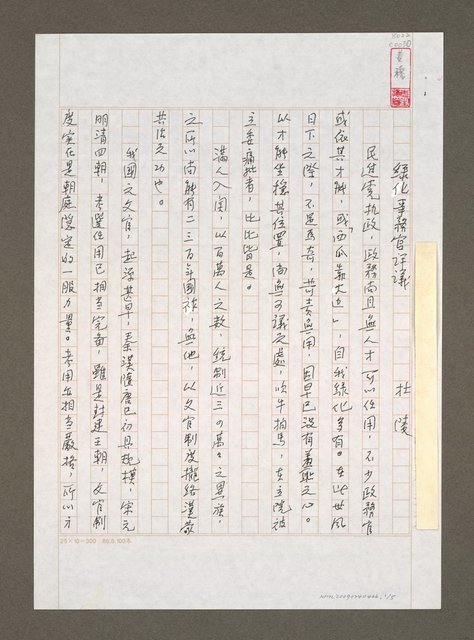 綠化事務官評議
杜陵
民進黨執政，政務尚且無人才可以任用，不少政務官
或依其才能，或「西瓜靠大邊」，自我綠化多有。在此世風
日下之際，不足為奇，苛責無用，因早已沒有羞恥之心。
以才能坐穩其位置，尚無可議之處，吹牛拍馬，在立院被
立委痛批者，比比皆是。
滿人入關，以百萬人之數，統制近三、四萬萬之異族，
之所以尚能有二三百年國祚，無他，以文官制度攏絡漢裔
共治之功也。
我國之文官，起源甚早，秦漢隋唐已初具規模，宋元
明清四朝，考選任用已相當完備，雖是封建王朝，文官制
度實在是朝庭穩定的一股力量。考用每相當嚴格，所以才
25×10=250